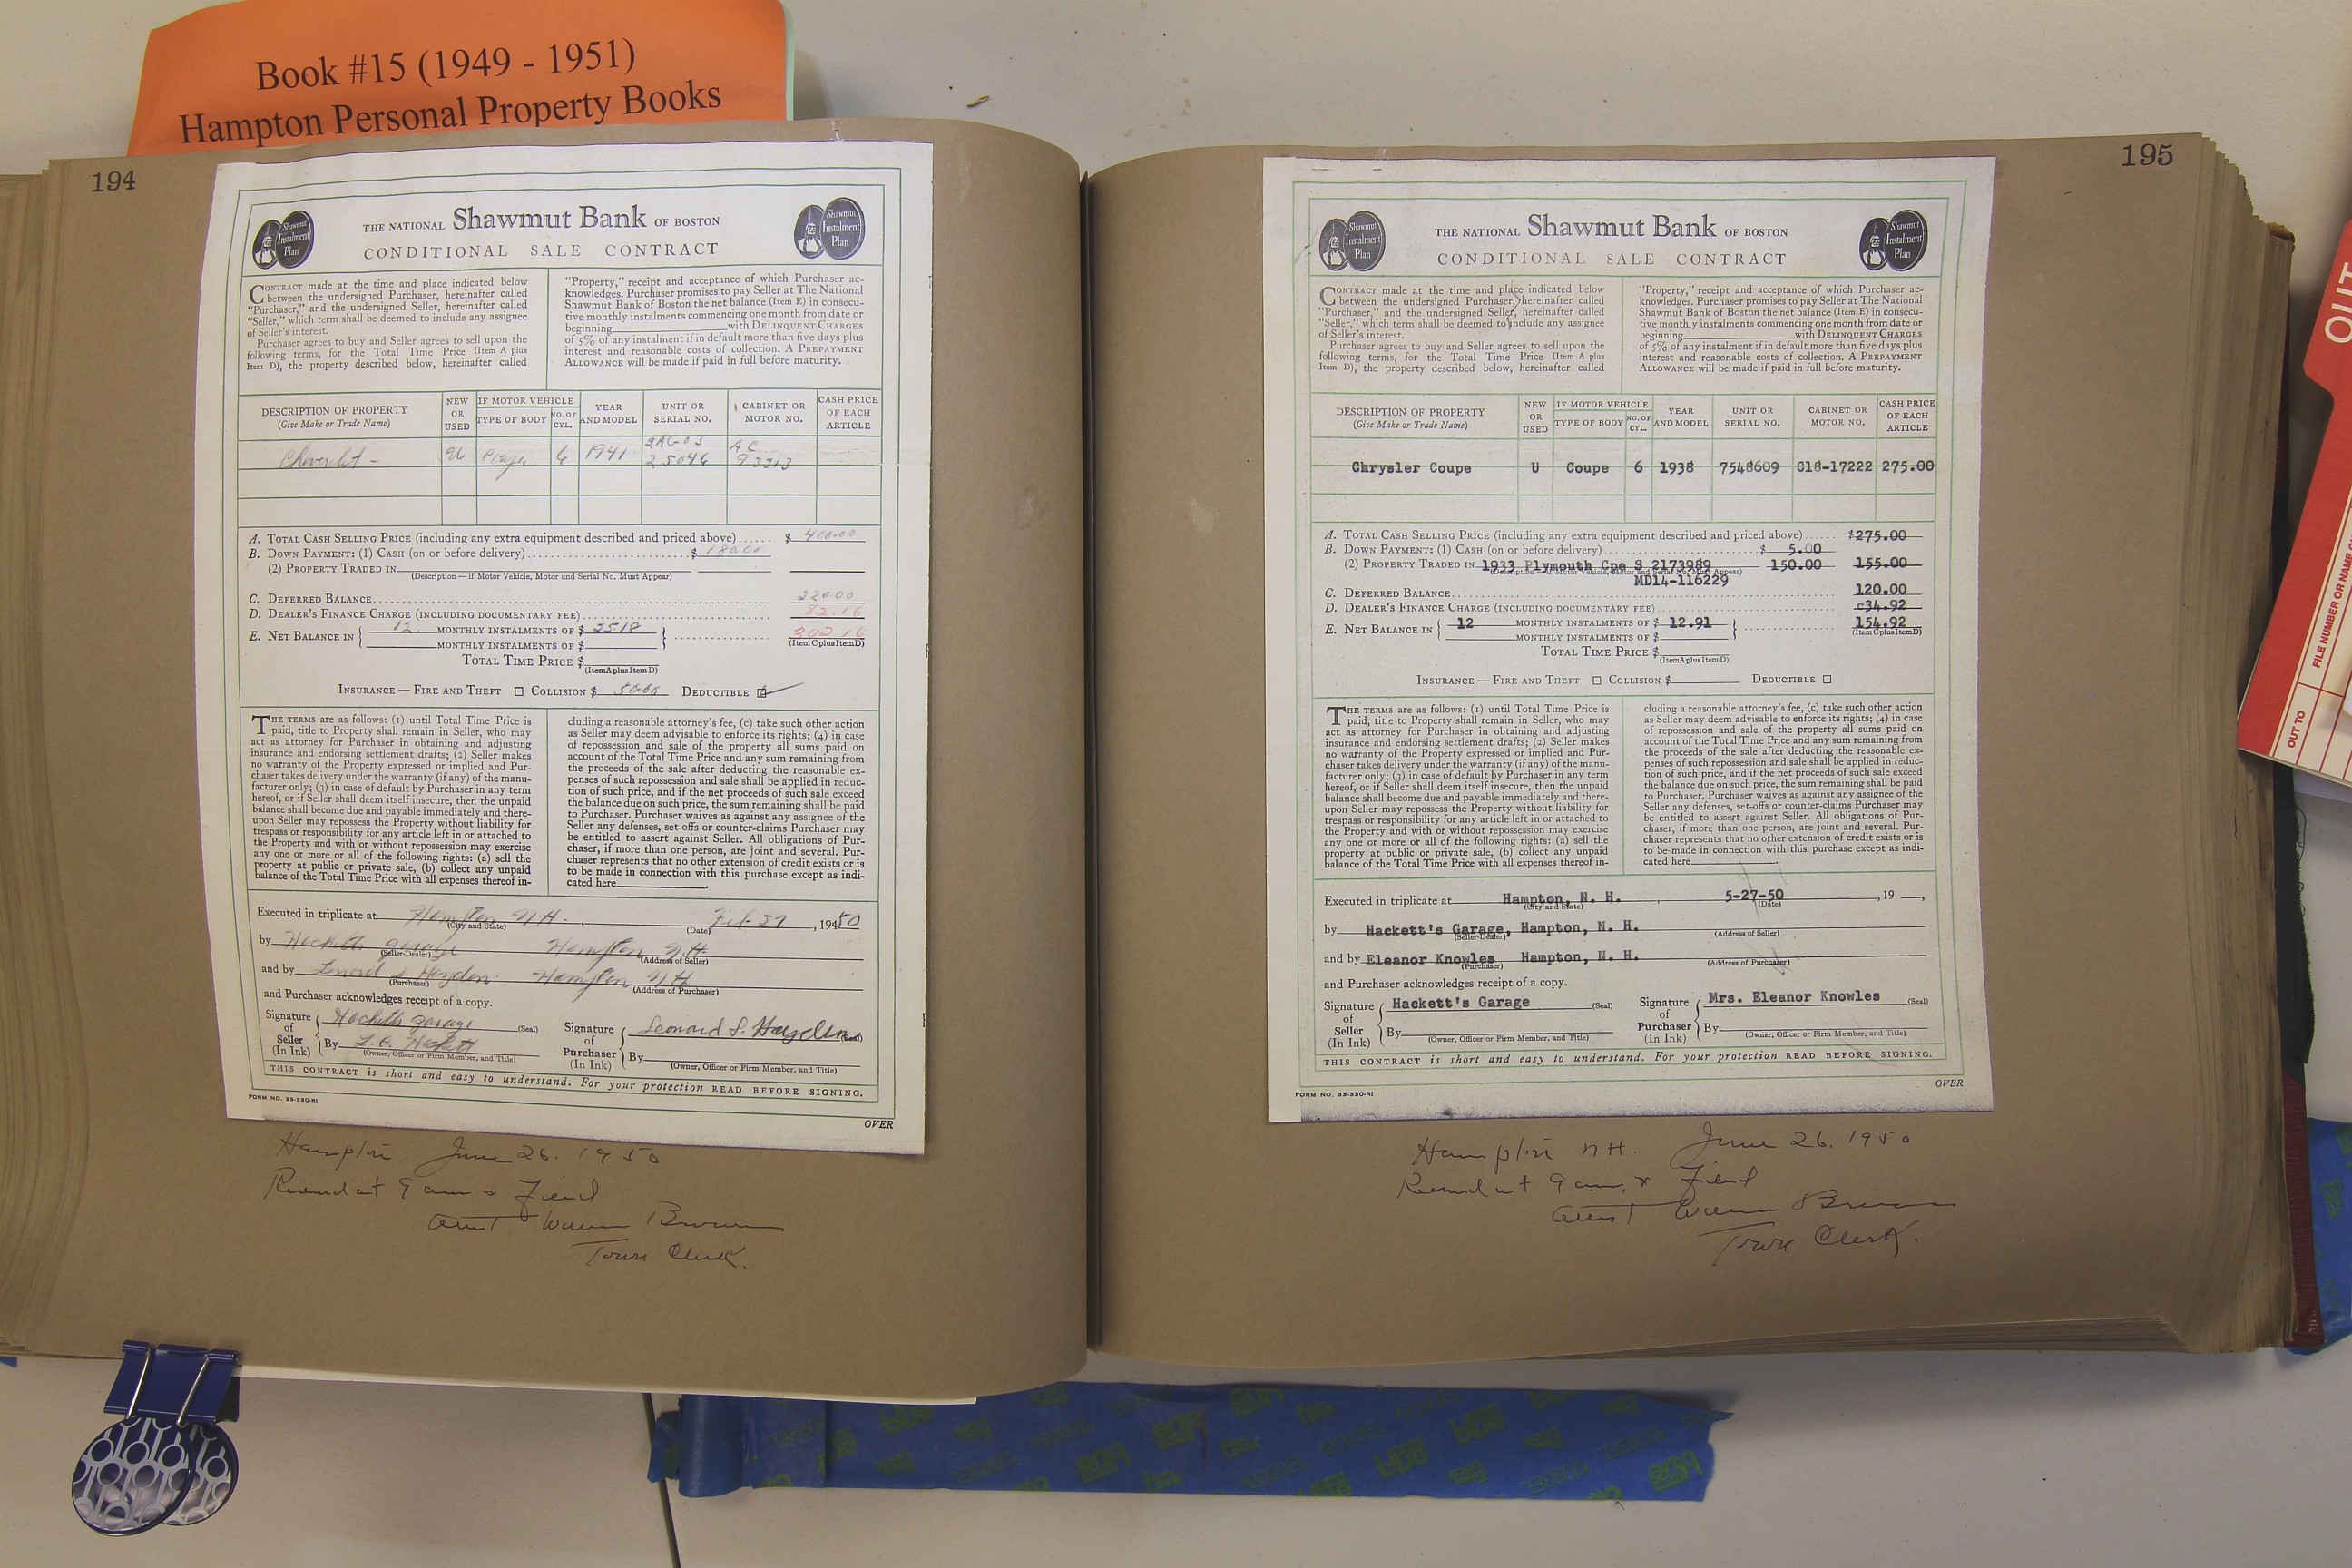 Book #15 (1949 - 1951)
Hampton Personal Property Books
194
Shawmut Instalment Plan
THE NATIONAL Shawmut Bank OF BOSTON
CONDITIONAL SALE CONTRACT
Shawmut Instalment Plan
CONTRACT made at the time and place indicated below
between the undersigned Purchaser, hereinafter called
"Purchaser," and the undersigned Seller, hereinafter called
"Seller," which term shall be deemed to include any assignee
of Seller's interest.
Purchaser agrees to buy and Seller agrees to sell upon the
following terms, for the Total Time Price (Item A plus
Item D), the property described below, hereinafter called
"Property," receipt and acceptance of which Purchaser ac-
knowledges. Purchaser promises to pay Seller at The National
Shawmut Bank of Boston the net balance (Item E) in consecu-
tive monthly instalments commencing one month from date or
beginning with DELINQUENT CHARGES
of 5% of any instalment if in default more than five days plus
interest and reasonable costs of collection. A PREPAYMENT
ALLOWANCE will be made if paid in full before maturity.
DESCRIPTION OF PROPERTY
(Give Make or Trade Name)
NEW OR USED
IF MOTOR VEHICLE
TYPE OF BODY
NO. OF CYL.
YEAR AND MODEL
UNIT OR SERIAL NO.
CABINET OR MOTOR NO.
CASH PRICE OF EACH ARTICLE
Cheverlet - U 6 1941 2AG-03 25046 AC 93313
A. TOTAL CASH SELLING PRICE (including any extra equipment described and priced above)...... $ 400.00
B. DOWN PAYMENT: (1) CASH (on or before delivery) $ 180.00
(2) PROPERTY TRADED IN
(Description — if Motor Vehicle, Motor and Serial No. Must Appear)
C. DEFERRED BALANCE 220.00
D. DEALER'S FINANCE CHARGE (INCLUDING DOCUMENTARY FEE) 82.16
E. NET BALANCE IN { 12 MONTHLY INSTALMENTS OF $ 25.18 } 302.16
MONTHLY INSTALMENTS OF $ (Item C plus Item D)
TOTAL TIME PRICE $
(Item A plus Item D)
INSURANCE — FIRE AND THEFT □ COLLISION $ 50.00 DEDUCTIBLE ☑
THE TERMS are as follows: (1) until Total Time Price is
paid, title to Property shall remain in Seller, who may
act as attorney for Purchaser in obtaining and adjusting
insurance and endorsing settlement drafts; (2) Seller makes
no warranty of the Property expressed or implied and Pur-
chaser takes delivery under the warranty (if any) of the manu-
facturer only; (3) in case of default by Purchaser in any term
hereof, or if Seller shall deem itself insecure, then the unpaid
balance shall become due and payable immediately and there-
upon Seller may repossess the Property without liability for
trespass or responsibility for any article left in or attached to
the Property and with or without repossession may exercise
any one or more or all of the following rights: (a) sell the
property at public or private sale, (b) collect any unpaid
balance of the Total Time Price with all expenses thereof in-
cluding a reasonable attorney's fee, (c) take such other action
as Seller may deem advisable to enforce its rights; (4) in case
of repossession and sale of the property all sums paid on
account of the Total Time Price and any sum remaining from
the proceeds of the sale after deducting the reasonable ex-
penses of such repossession and sale shall be applied in reduc-
tion of such price, and if the net proceeds of such sale exceed
the balance due on such price, the sum remaining shall be paid
to Purchaser. Purchaser waives as against any assignee of the
Seller any defenses, set-offs or counter-claims Purchaser may
be entitled to assert against Seller. All obligations of Pur-
chaser, if more than one person, are joint and several. Pur-
chaser represents that no other extension of credit exists or is
to be made in connection with this purchase except as indi-
cated here .
Executed in triplicate at Hampton N.H. , Feb. 27 , 1950
(City and State) (Date)
by Hacketts Garage Hampton N.H.
(Seller-Dealer) (Address of Seller)
and by Leonard S. Hayden Hampton N.H.
(Purchaser) (Address of Purchaser)
and Purchaser acknowledges receipt of a copy.
Signature of Seller (In Ink) { Hacketts Garage (Seal)
By L.C. Hackett
(Owner, Officer or Firm Member, and Title)
Signature of Purchaser (In Ink) { Leonard S. Hayden (Seal)
By
(Owner, Officer or Firm Member, and Title)
THIS CONTRACT is short and easy to understand. For your protection READ BEFORE SIGNING.
FORM NO. 33-330-R1
OVER
Hampton June 26. 1950
Received at 9 am & Filed
Attest William Brown
Town Clerk.
195
Shawmut Instalment Plan
THE NATIONAL Shawmut Bank OF BOSTON
CONDITIONAL SALE CONTRACT
Shawmut Instalment Plan
CONTRACT made at the time and place indicated below
between the undersigned Purchaser, hereinafter called
"Purchaser," and the undersigned Seller, hereinafter called
"Seller," which term shall be deemed to include any assignee
of Seller's interest.
Purchaser agrees to buy and Seller agrees to sell upon the
following terms, for the Total Time Price (Item A plus
Item D), the property described below, hereinafter called
"Property," receipt and acceptance of which Purchaser ac-
knowledges. Purchaser promises to pay Seller at The National
Shawmut Bank of Boston the net balance (Item E) in consecu-
tive monthly instalments commencing one month from date or
beginning with DELINQUENT CHARGES
of 5% of any instalment if in default more than five days plus
interest and reasonable costs of collection. A PREPAYMENT
ALLOWANCE will be made if paid in full before maturity.
DESCRIPTION OF PROPERTY
(Give Make or Trade Name)
NEW OR USED
IF MOTOR VEHICLE
TYPE OF BODY
NO. OF CYL.
YEAR AND MODEL
UNIT OR SERIAL NO.
CABINET OR MOTOR NO.
CASH PRICE OF EACH ARTICLE
Chrysler Coupe U Coupe 6 1938 7548609 C18-17222 275.00
A. TOTAL CASH SELLING PRICE (including any extra equipment described and priced above)...... $275.00
B. DOWN PAYMENT: (1) CASH (on or before delivery) $ 5.00
(2) PROPERTY TRADED IN 1933 Plymouth Cpe S 2173989 150.00 155.00
(Description — if Motor Vehicle, Motor and Serial No. Must Appear)
MD14-116229
C. DEFERRED BALANCE 120.00
D. DEALER'S FINANCE CHARGE (INCLUDING DOCUMENTARY FEE) c34.92
E. NET BALANCE IN { 12 MONTHLY INSTALMENTS OF $ 12.91 } 154.92
MONTHLY INSTALMENTS OF $ (Item C plus Item D)
TOTAL TIME PRICE $
(Item A plus Item D)
INSURANCE — FIRE AND THEFT □ COLLISION $ DEDUCTIBLE □
THE TERMS are as follows: (1) until Total Time Price is
paid, title to Property shall remain in Seller, who may
act as attorney for Purchaser in obtaining and adjusting
insurance and endorsing settlement drafts; (2) Seller makes
no warranty of the Property expressed or implied and Pur-
chaser takes delivery under the warranty (if any) of the manu-
facturer only; (3) in case of default by Purchaser in any term
hereof, or if Seller shall deem itself insecure, then the unpaid
balance shall become due and payable immediately and there-
upon Seller may repossess the Property without liability for
trespass or responsibility for any article left in or attached to
the Property and with or without repossession may exercise
any one or more or all of the following rights: (a) sell the
property at public or private sale, (b) collect any unpaid
balance of the Total Time Price with all expenses thereof in-
cluding a reasonable attorney's fee, (c) take such other action
as Seller may deem advisable to enforce its rights; (4) in case
of repossession and sale of the property all sums paid on
account of the Total Time Price and any sum remaining from
the proceeds of the sale after deducting the reasonable ex-
penses of such repossession and sale shall be applied in reduc-
tion of such price, and if the net proceeds of such sale exceed
the balance due on such price, the sum remaining shall be paid
to Purchaser. Purchaser waives as against any assignee of the
Seller any defenses, set-offs or counter-claims Purchaser may
be entitled to assert against Seller. All obligations of Pur-
chaser, if more than one person, are joint and several. Pur-
chaser represents that no other extension of credit exists or is
to be made in connection with this purchase except as indi-
cated here .
Executed in triplicate at Hampton, N. H. , 5-27-50 , 19 ,
(City and State) (Date)
by Hackett's Garage, Hampton, N. H.
(Seller-Dealer) (Address of Seller)
and by Eleanor Knowles Hampton, N. H.
(Purchaser) (Address of Purchaser)
and Purchaser acknowledges receipt of a copy.
Signature of Seller (In Ink) { Hackett's Garage (Seal)
By
(Owner, Officer or Firm Member, and Title)
Signature of Purchaser (In Ink) { Mrs. Eleanor Knowles (Seal)
By
(Owner, Officer or Firm Member, and Title)
THIS CONTRACT is short and easy to understand. For your protection READ BEFORE SIGNING.
FORM NO. 33-330-R1
OVER
Hampton N.H. June 26. 1950
Received at 9 am. & Filed
Attest William Brown
Town Clerk.
OUT
FILE NUMBER OR NAME
OUT TO